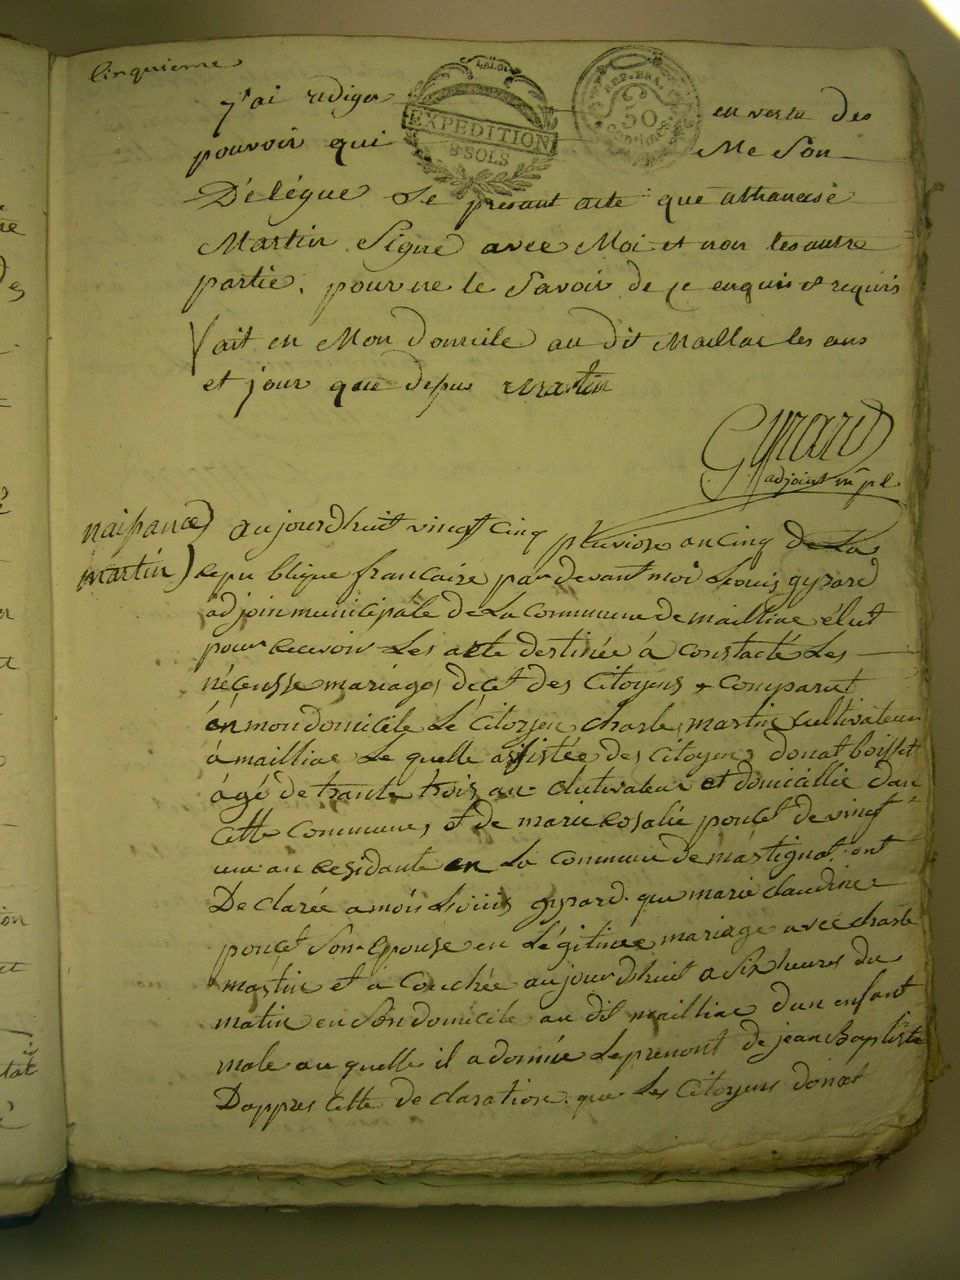 Cinquieme
EXPEDITION
8 SOLS
REP. FRA.
50
Centimes
J'ai rediger en vertu des
pouvoir qui Me Son
Délégue Le presant acte que athanase
Martin Signe avec Moi et non les autre
partie, pour ne le Savoir de ce enquis et requis
fait en Mon domicile au dit Maillac les ans
et jour que depus martin
Gyrard
adjoint m pl
naissance aujourdhuit vingt cinq pluviose an cinq de La
martin republique francaise par devant moi Louis gyrard
adjoin municipale de La commune de mailliac élut
pour recevoir Les acte destinée à constaté Les
nécensse mariages decet des Citoyens + comparut
en mon domicile Le Citoyen charle martin cultivateur
à mailliac Le quelle asistée des Citoyens donat boisset
âgé de trante trois an clutivateur et domicillié dan
cette commune, et de marie rosalie poncet de vingt
un an residante en La commune de martignat, ont
Declarée a mois Louis gyrard que marie claudine
poncet Son epouse en Légitimee mariage avec charle
martin et à couchée aujourdhuit a Six heures du
matin en Son domicile au dit mailliac d'un enfant
male au quelle il a donnée Le prenont de jean Baptiste
Dappres cette declaration que Les Citoyens donat